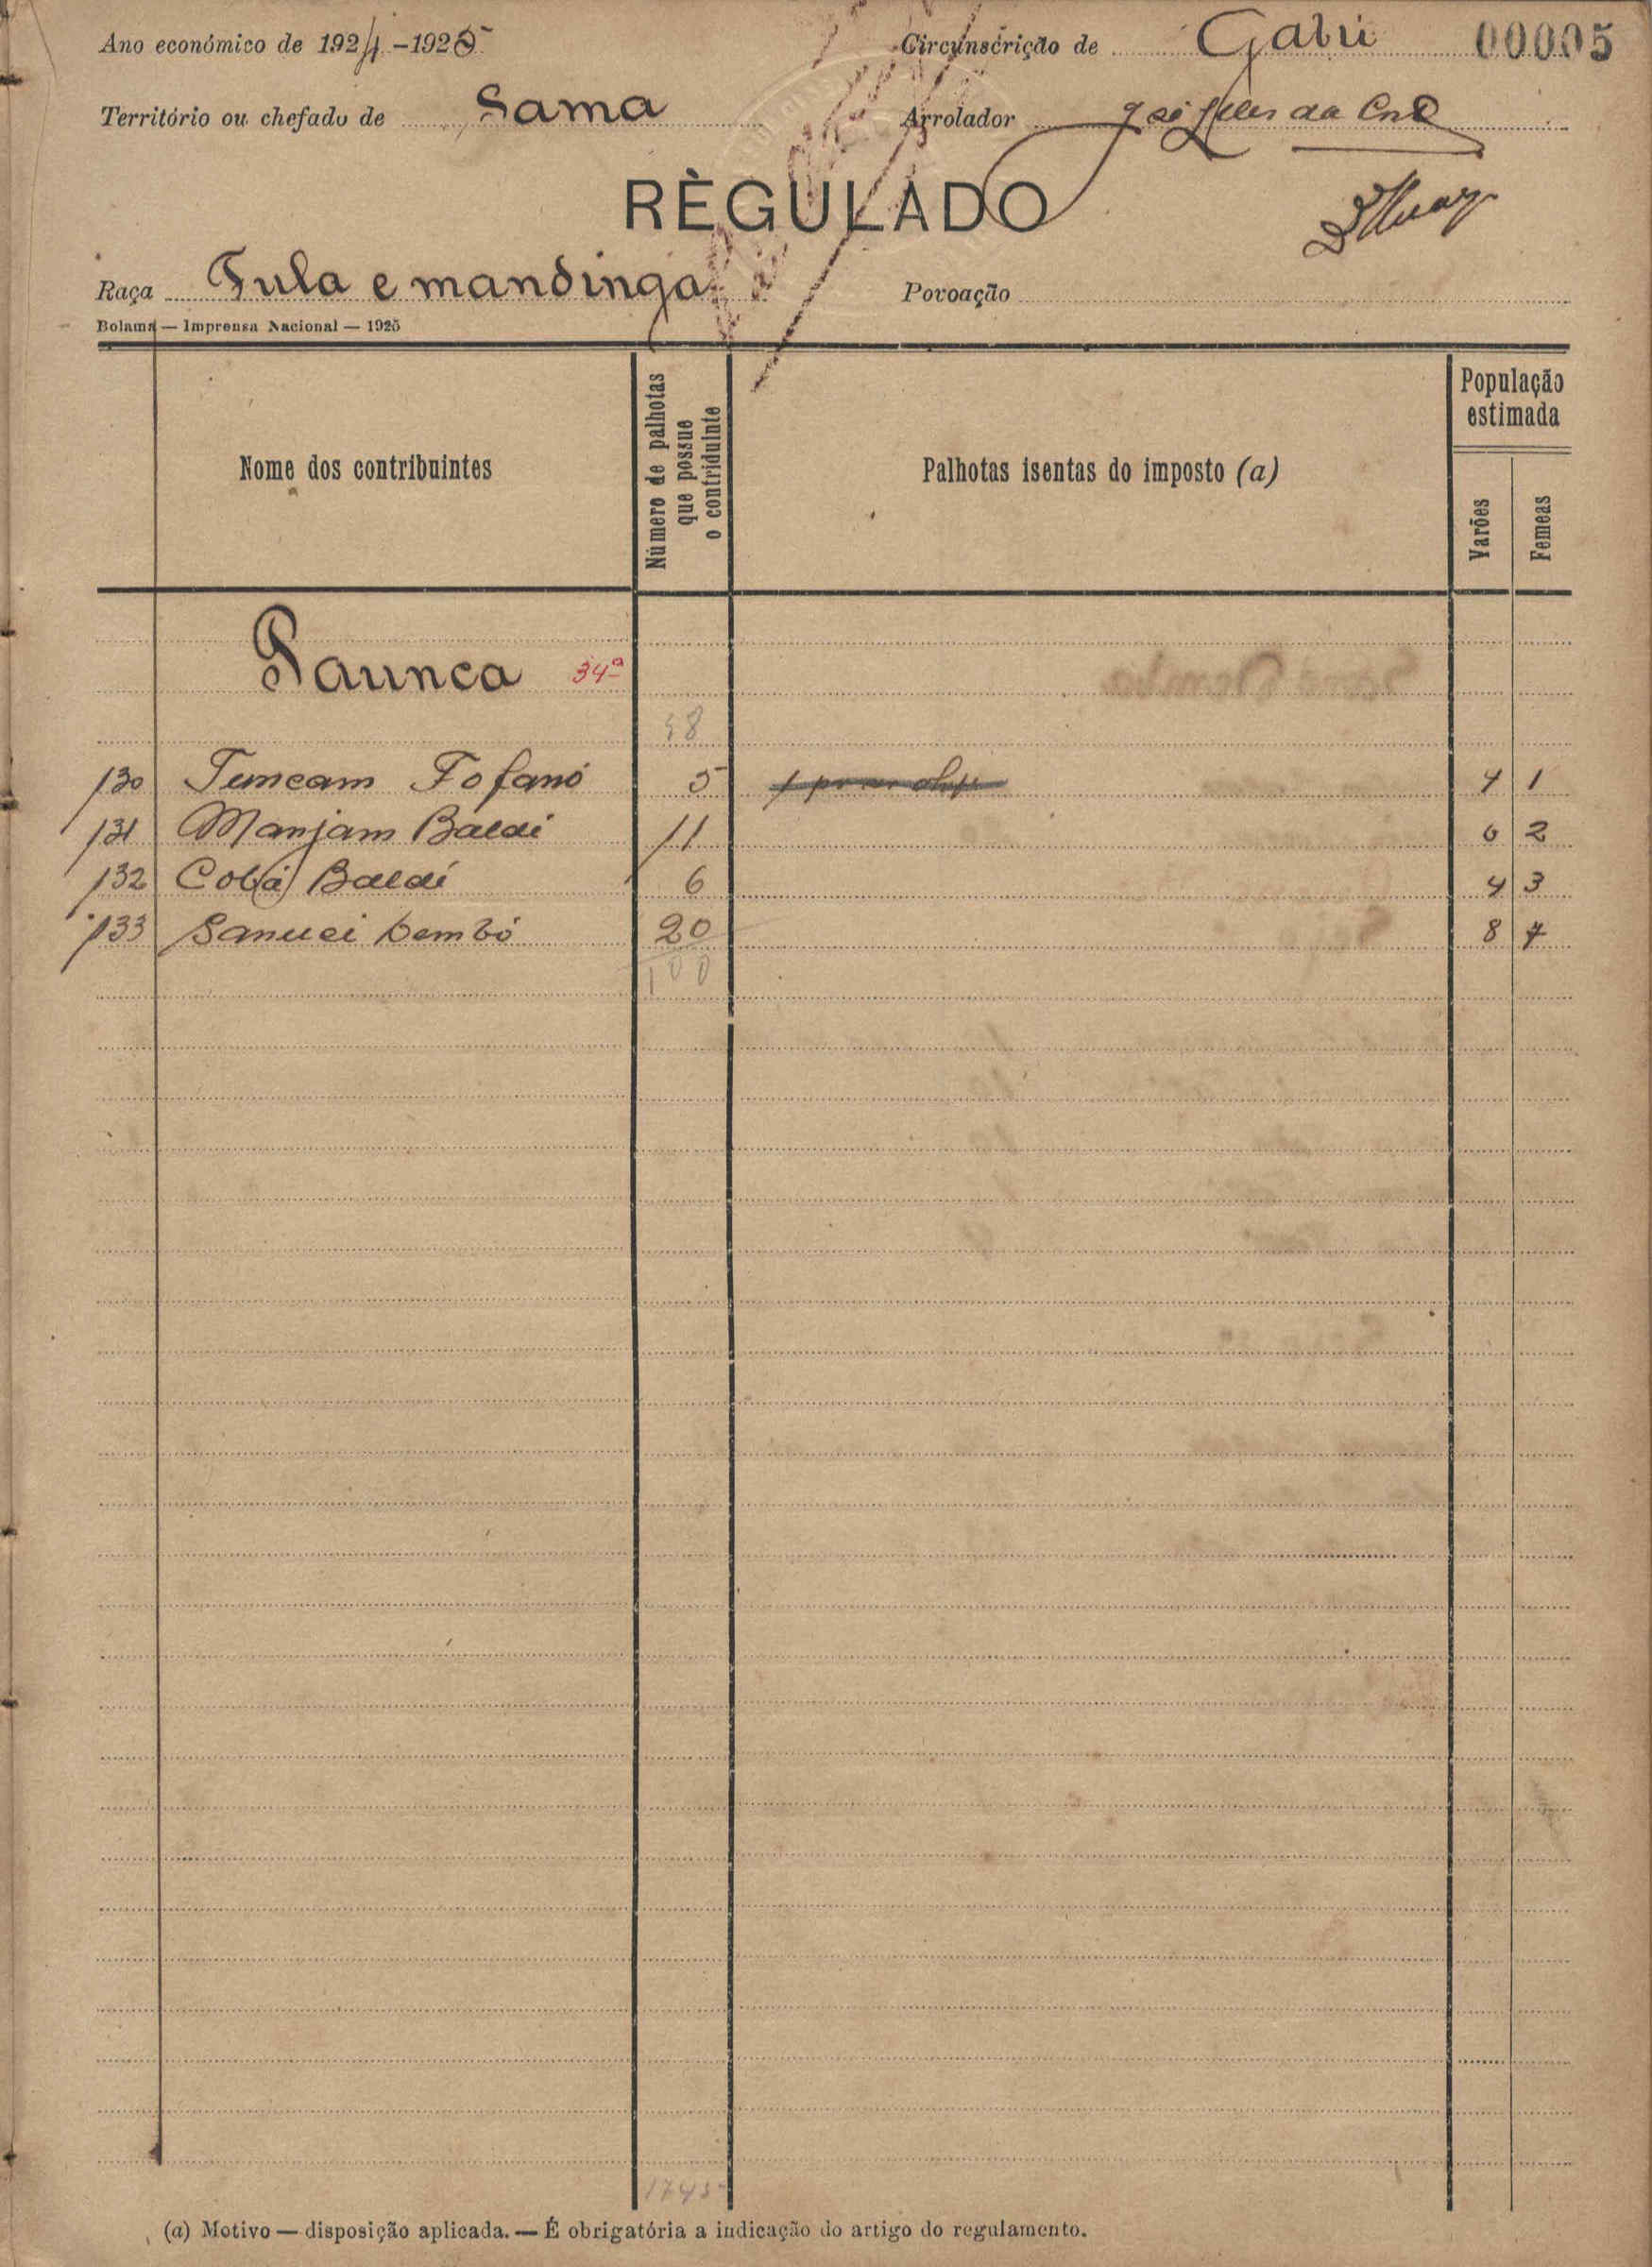 Ano económico de 1924-1925
Circunscrição de Gabú 00005
Território ou chefado de Sama
Arrolador
RÈGULADO
Raça Fula e mandinga
Povoação
Bolama — Imprensa Nacional — 1925
Nome dos contribuintes
Número de palhotas que possue o contriduinte
Palhotas isentas do imposto (a)
População estimada
Varões
Femeas
Paunca 34ª
48
130 Temeam Fofanó 5 4 1
131 Manjam Baldi 11 6 2
132 Cobá Baldé 6 4 3
133 Sanuci Dembó 20 8 7
100
1745
(a) Motivo — disposição aplicada. — É obrigatória a indicação do artigo do regulamento.